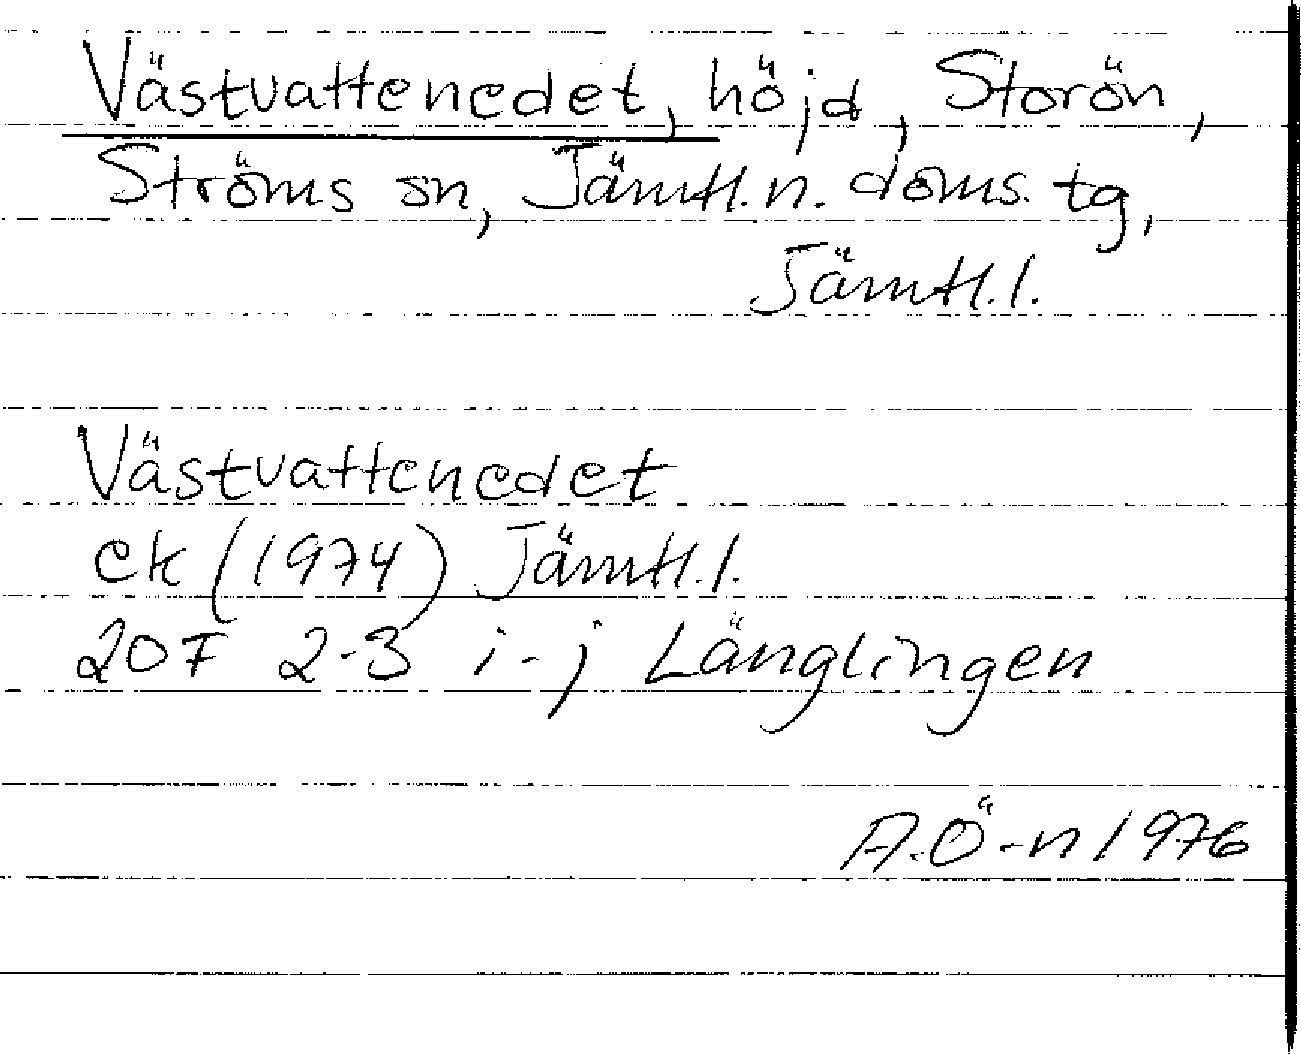 Västvattenedet, höjd, Storön,
Ströms sn, Jämtl. n. doms. tg,
Jämtl. l.
Västvattenedet
ek (1974) Jämtl. l.
20F 2-3 i-j Länglingen
A.Ö-n 1976